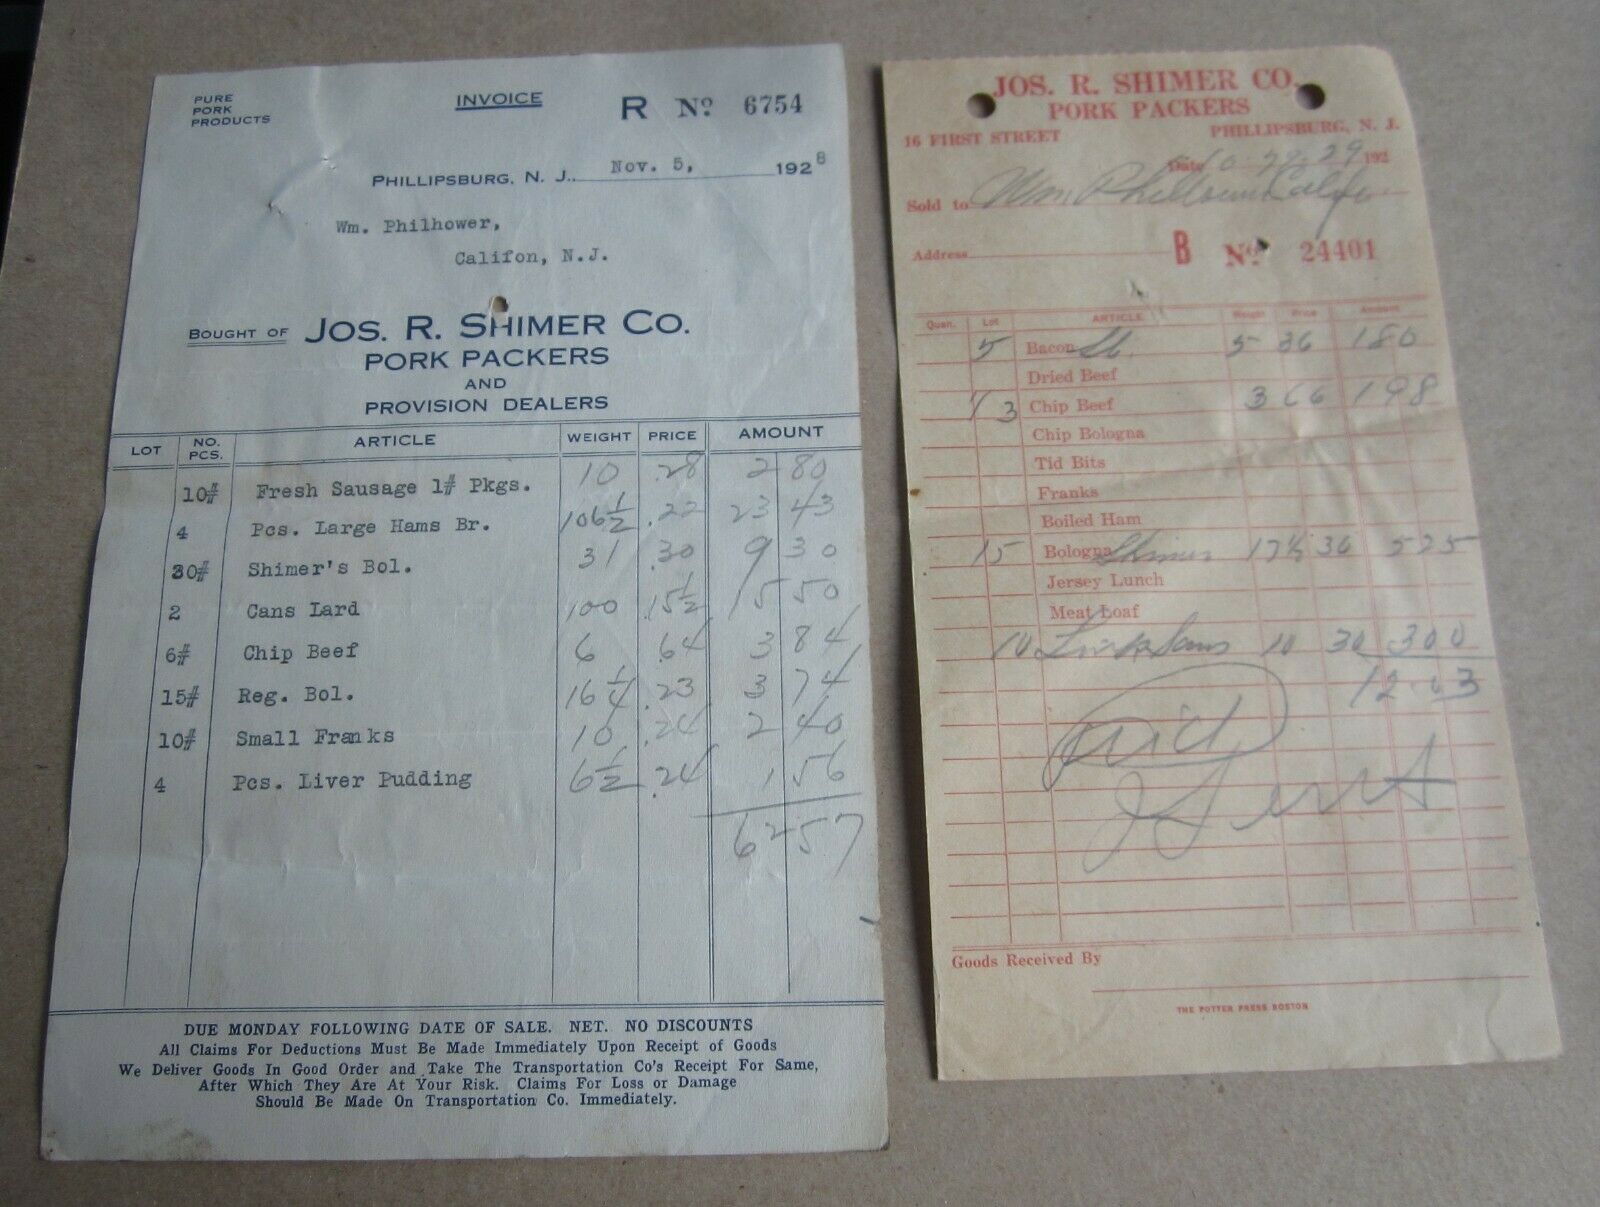 PURE
PORK
PRODUCTS
INVOICE
R No. 6754
PHILLIPSBURG, N. J. Nov. 5, 1928
Wm. Philhower,
Califon, N.J.
BOUGHT OF JOS. R. SHIMER CO.
PORK PACKERS
AND
PROVISION DEALERS
LOT NO. PCS. ARTICLE WEIGHT PRICE AMOUNT
10# Fresh Sausage 1# Pkgs. 10 .28 2 80
4 Pcs. Large Hams Br. 106 1/2 .22 23 43
30# Shimer's Bol. 31 .30 9 30
2 Cans Lard 100 .15 1/2 15 50
6# Chip Beef 6 .64 3 84
15# Reg. Bol. 16 1/4 .23 3 74
10# Small Franks 10 .24 2 40
4 Pcs. Liver Pudding 6 1/2 .24 1 56
62 57
DUE MONDAY FOLLOWING DATE OF SALE. NET. NO DISCOUNTS
All Claims For Deductions Must Be Made Immediately Upon Receipt of Goods
We Deliver Goods In Good Order and Take The Transportation Co's Receipt For Same,
After Which They Are At Your Risk. Claims For Loss or Damage
Should Be Made On Transportation Co. Immediately.
JOS. R. SHIMER CO.
PORK PACKERS
16 FIRST STREET PHILLIPSBURG, N. J.
Date 10 29 192
Sold to Wm Philhower
Address B No. 24401
Quan. Lot ARTICLE Weight Price Amount
5 Bacon 5 36 180
Dried Beef
3 Chip Beef 3 66 198
Chip Bologna
Tid Bits
Franks
Boiled Ham
15 Bologna Shimer 17 1/2 30 525
Jersey Lunch
Meat Loaf
10 Link Saus 10 30 300
12.03
Paid
Goods Received By
THE POTTER PRESS BOSTON